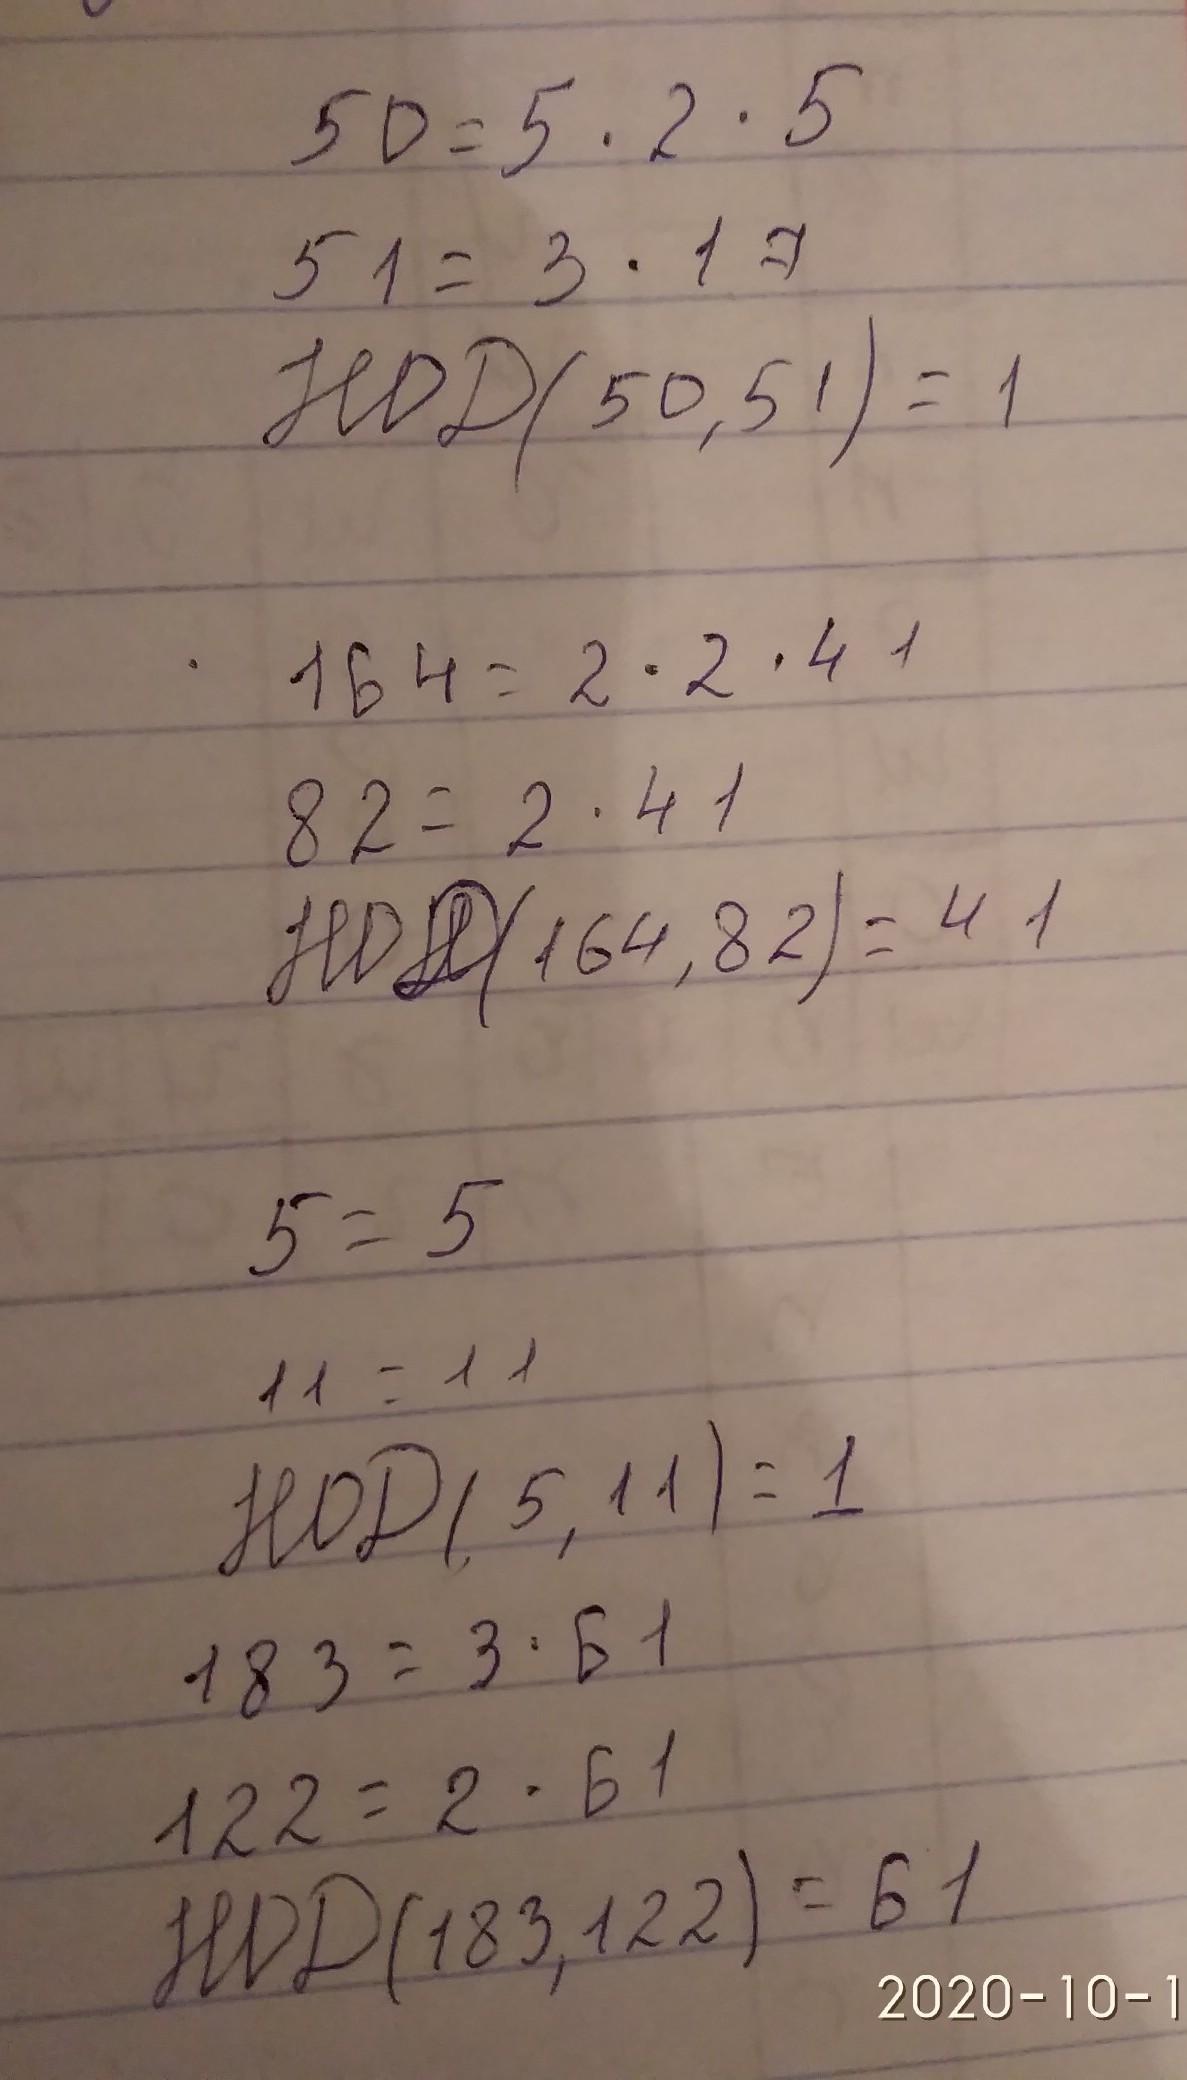 50 = 5 · 2 · 5
51 = 3 · 17
НОД(50,51) = 1
164 = 2 · 2 · 41
82 = 2 · 41
НОД(164,82) = 41
5 = 5
11 = 11
НОД(5,11) = 1
183 = 3 · 61
122 = 2 · 61
НОД(183,122) = 61
2020-10-1